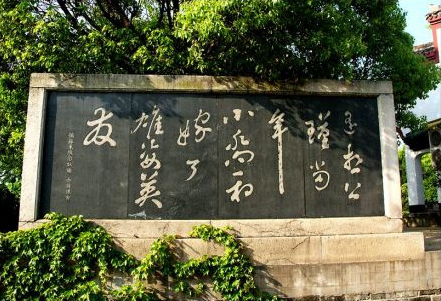 遥想公
瑾当
年
小喬初
嫁了
雄姿英
发